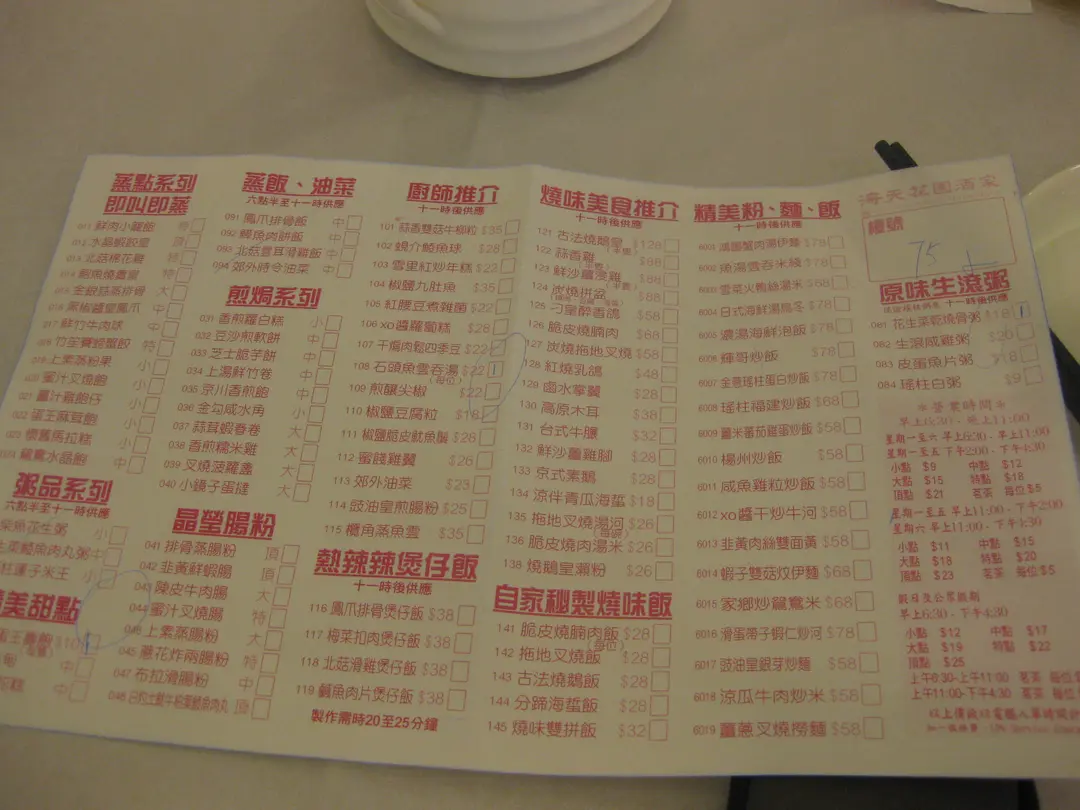 蒸點系列
即叫即蒸
鮮肉小籠飽
水晶蝦餃皇 頂
北菇棉花雞 特
鮑魚燒賣皇 特
金銀蒜蒸排骨 大
黑椒醬皇鳳爪 中
鮮竹牛肉球 中
竹笙賽螃蟹餃 特
上素蒸粉果 小
蜜汁叉燒飽 小
薑汁雞飽仔 小
蛋王麻茸飽 小
懷舊馬拉糕 小
鴛鴦水晶飽 中
粥品系列
六點半至十一時供應
柴魚花生粥 小
鯪魚肉丸粥 中
蓮子米王 小
美甜點
$10
中
中
蒸飯、油菜
六點半至十一時供應
091 鳳爪排骨飯 中
092 鯪魚肉餅飯 中
093 北菇雲耳滑雞飯 中
094 郊外時令油菜 中
煎焗系列
031 香煎蘿白糕 小
032 豆沙煎軟餅 中
033 芝士脆芋餅 中
034 上湯鮮竹卷 中
035 京川香煎飽 中
036 金勾咸水角 小
037 蒜茸蝦春卷 大
038 香煎糯米雞 大
039 叉燒菠蘿盞 大
040 小鏡子蛋撻 大
晶瑩腸粉
041 排骨蒸腸粉 頂
042 韭黃鮮蝦腸 頂
043 陳皮牛肉腸 大
044 蜜汁叉燒腸 特
045 上素蒸腸粉 大
046 蔥花炸兩腸粉 特
047 布拉滑腸粉 中
頂
廚師推介
十一時後供應
101 蒜香雙菇牛柳粒 $35
102 蜆介鯪魚球 $28
103 雪里紅炒年糕 $22
104 椒鹽九肚魚 $35
105 紅腰豆煮雜菌 $22
106 xo醬蘿蔔糕 $28
107 干煸肉鬆四季豆 $22
108 石頭魚雲吞湯 $22 1
(每位)
109 煎釀尖椒 $22
110 椒鹽豆腐粒 $18
111 椒鹽脆皮魷魚鬚 $28
112 蜜餞雞翼 $26
113 郊外油菜 $23
114 豉油皇煎腸粉 $25
115 欖角蒸魚雲 $35
熱辣辣煲仔飯
十一時後供應
116 鳳爪排骨煲仔飯 $38
117 梅菜扣肉煲仔飯 $38
118 北菇滑雞煲仔飯 $38
119 鯇魚肉片煲仔飯 $38
製作需時20至25分鐘
燒味美食推介
十一時後供應
121 古法燒鵝皇 $128
122 蒜香雞 $68
123 鮮沙薑浸雞 $68
124 炭燒拼盆 $88
125 刁皇醉香鴿 $58
126 脆皮燒腩肉 $68
127 炭燒拖地叉燒 $58
128 紅燒乳鴿 $48
129 鹵水掌翼 $38
130 高原木耳 $38
131 台式牛𦟌 $32
132 鮮沙薑雞腳 $28
133 京式素鵝 $28
134 涼伴青瓜海蜇 $18
135 拖地叉燒湯河 $26
136 脆皮燒肉湯米 $26
138 燒鵝皇瀨粉 $26
自家秘製燒味飯
141 脆皮燒腩肉飯 $28
(每位)
142 拖地叉燒飯 $28
143 古法燒鵝飯 $28
144 分蹄海蜇飯 $28
145 燒味雙拼飯 $32
精美粉、麵、飯
十一時後供應
6001 鴻圖蟹肉湯伊麵 $78
6002 魚湯雲吞米綫 $78
6003 雪菜火鴨絲湯米 $58
6004 日式海鮮湯烏冬 $78
6005 濃湯海鮮泡飯 $78
6006 輝哥炒飯 $78
6007 金菇瑤柱蛋白炒飯 $78
6008 瑤柱福建炒飯 $68
6009 薑米蕃茄雞蛋炒飯 $58
6010 楊州炒飯 $58
6011 咸魚雞粒炒飯 $58
6012 xo醬干炒牛河 $58
6013 韭黃肉絲雙面黃 $58
6014 蝦子雙菇炆伊麵 $68
6015 家鄉炒鴛鴦米 $68
6016 滑蛋帶子蝦仁炒河 $78
6017 豉油皇銀芽炒麵 $58
6018 涼瓜牛肉炒米 $58
6019 薑蔥叉燒撈麵 $58
海天花園酒家
檯號
75
原味生滾粥
十一時後供應
081 花生菜乾燒骨粥 $18 1
082 生滾咸雞粥 $20
083 皮蛋魚片粥 $18
084 瑤柱白粥 $9
營業時間
早上6:30 - 晚上11:00
星期一至六 早上6:30 - 早上11:00
星期一至五 下午2:00 - 下午4:30
小點 $9 中點 $12
大點 $15 特點 $18
頂點 $21 茗茶 每位$5
星期一至五 早上11:00 - 下午2:00
星期六 早上11:00 - 下午4:30
小點 $11 中點 $15
大點 $18 特點 $20
頂點 $23 茗茶 每位$5
假日及公眾假期
早上6:30 - 下午4:30
小點 $12 中點 $17
大點 $19 特點 $22
頂點 $25
上午6:30-上午11:00 茗茶 每位
上午11:00-下午4:30 茗茶 每位
加一服務費 10% Service